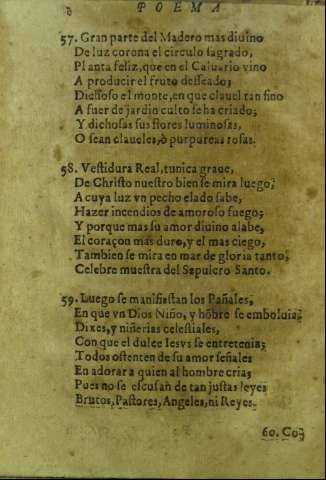 8 POEMA
57. Gran parte del Madero mas diuino
De luz corona el circulo sagrado,
Planta feliz, que en el Caluario vino
A producir el fruto desseado;
Dichoso el monte, en que clauel tan fino
A fuer de jardin culto se ha criado;
Y dichosas sus flores luminosas,
O sean claueles, ò purpureas rosas.
58. Vestidura Real, tunica graue,
De Christo nuestro bien se mira luego;
A cuya luz vn pecho elado sabe,
Hazer incendios de amoroso fuego;
Y porque mas su amor diuino alabe,
El coraçon mas duro, y el mas ciego,
Tambien se mira en mar de gloria tanto,
Celebre muestra del Sepulcro Santo.
59. Luego se manifiestan los Pañales,
En que vn Dios Niño, y hõbre se emboluia;
Dixes, y niñerias celestiales,
Con que el dulce Iesvs se entretenia;
Todos ostenten de su amor señales
En adorar a quien al hombre cria;
Pues no se escusan de tan justas leyes
Brutos, Pastores, Angeles, ni Reyes.
60. Cõ